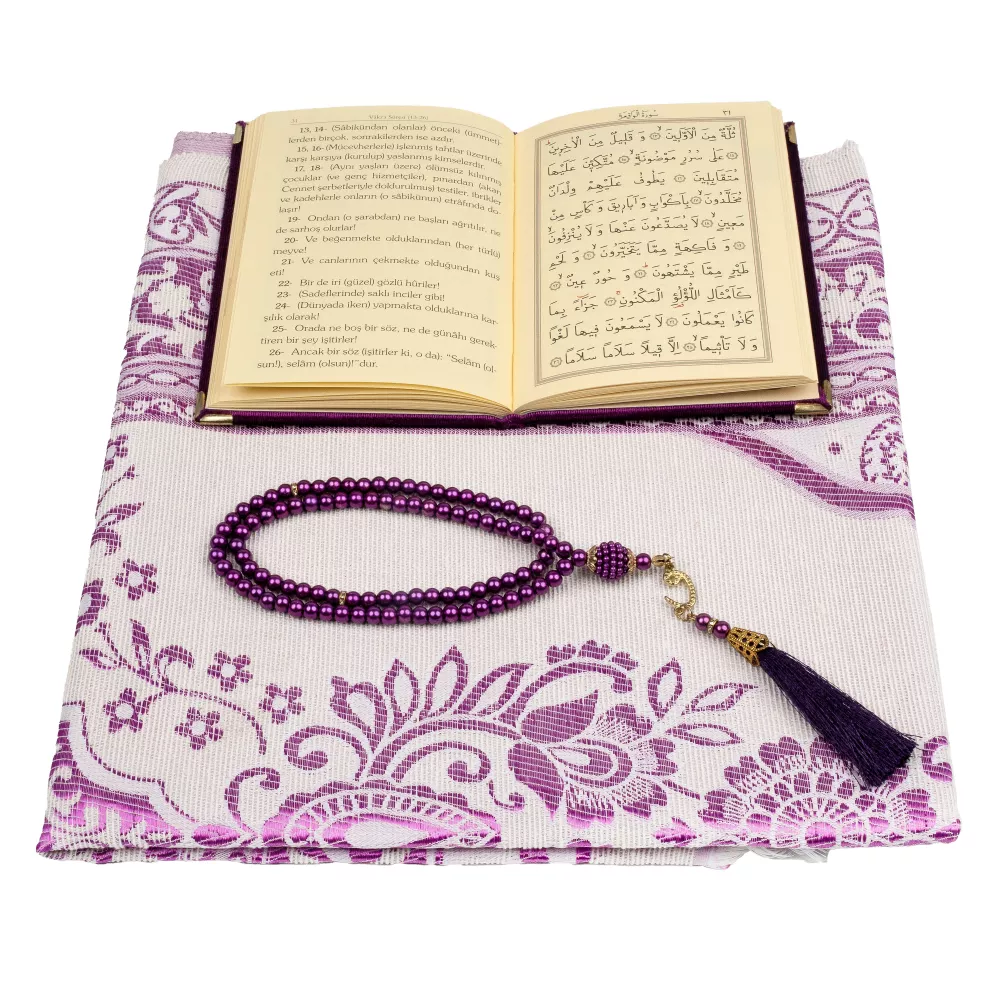 31 Vâkı'a Sûresi (13-26)
13, 14- (Sâbikûndan olanlar) önceki (ümmet-
lerden birçok, sonrakilerden ise azdır.
15, 16- (Mücevherlerle) işlenmiş tahtlar üzerinde
karşı karşıya (kurulup) yaslanmış kimselerdir.
17, 18- (Aynı yaşları üzere) ölümsüz kılınmış
çocuklar (ve genç hizmetçiler), pınardan (akan
Cennet şerbetleriyle doldurulmuş) testiler, ibrikler
ve kadehlerle onların (o sâbikûnun) etrâfında do-
laşır!
19- Ondan (o şarabdan) ne başları ağrıtılır, ne
de sarhoş olurlar!
20- Ve beğenmekte olduklarından (her türlü)
meyve!
21- Ve canlarının çekmekte olduğundan kuş
eti!
22- Bir de iri (güzel) gözlü hûriler!
23- (Sadeflerinde) saklı inciler gibi!
24- (Dünyada iken) yapmakta olduklarına kar-
şılık olarak!
25- Orada ne boş bir söz, ne de günâhı gerek-
tiren bir şey işitirler!
26- Ancak bir söz (işitirler ki, o da): “Selâm (ol-
sun!), selâm (olsun)!”dur.
سُورَةُ الْوَاقِعَةِ ٣١
ثُلَّةٌ مِنَ الْاَوَّلٖينَ ۝١٣ وَ قَلٖيلٌ مِنَ الْاٰخِرٖينَ
۝١٤ عَلٰى سُرُرٍ مَوْضُونَةٍ ۝١٥ مُتَّكِـٖٔينَ عَلَيْهَا
مُتَقَابِلٖينَ ۝١٦ يَطُوفُ عَلَيْهِمْ وِلْدَانٌ
مُخَلَّدُونَ ۝١٧ بِاَكْوَابٍ وَ اَبَارٖيقَ وَ كَأْسٍ مِنْ
مَعٖينٍ ۝١٨ لَا يُصَدَّعُونَ عَنْهَا وَ لَا يُنْزِفُونَ
۝١٩ وَ فَاكِهَةٍ مِمَّا يَتَخَيَّرُونَ ۝٢٠ وَ لَحْمِ
طَيْرٍ مِمَّا يَشْتَهُونَ ۝٢١ وَ حُورٌ عٖينٌ ۝٢٢
كَاَمْثَالِ اللُّؤْلُؤِ الْمَكْنُونِ ۝٢٣ جَزَٓاءً بِمَا
كَانُوا يَعْمَلُونَ ۝٢٤ لَا يَسْمَعُونَ فٖيهَا لَغْوًا
وَ لَا تَأْثٖيمًا ۝٢٥ اِلَّا قٖيلًا سَلَامًا سَلَامًا ۝٢٦